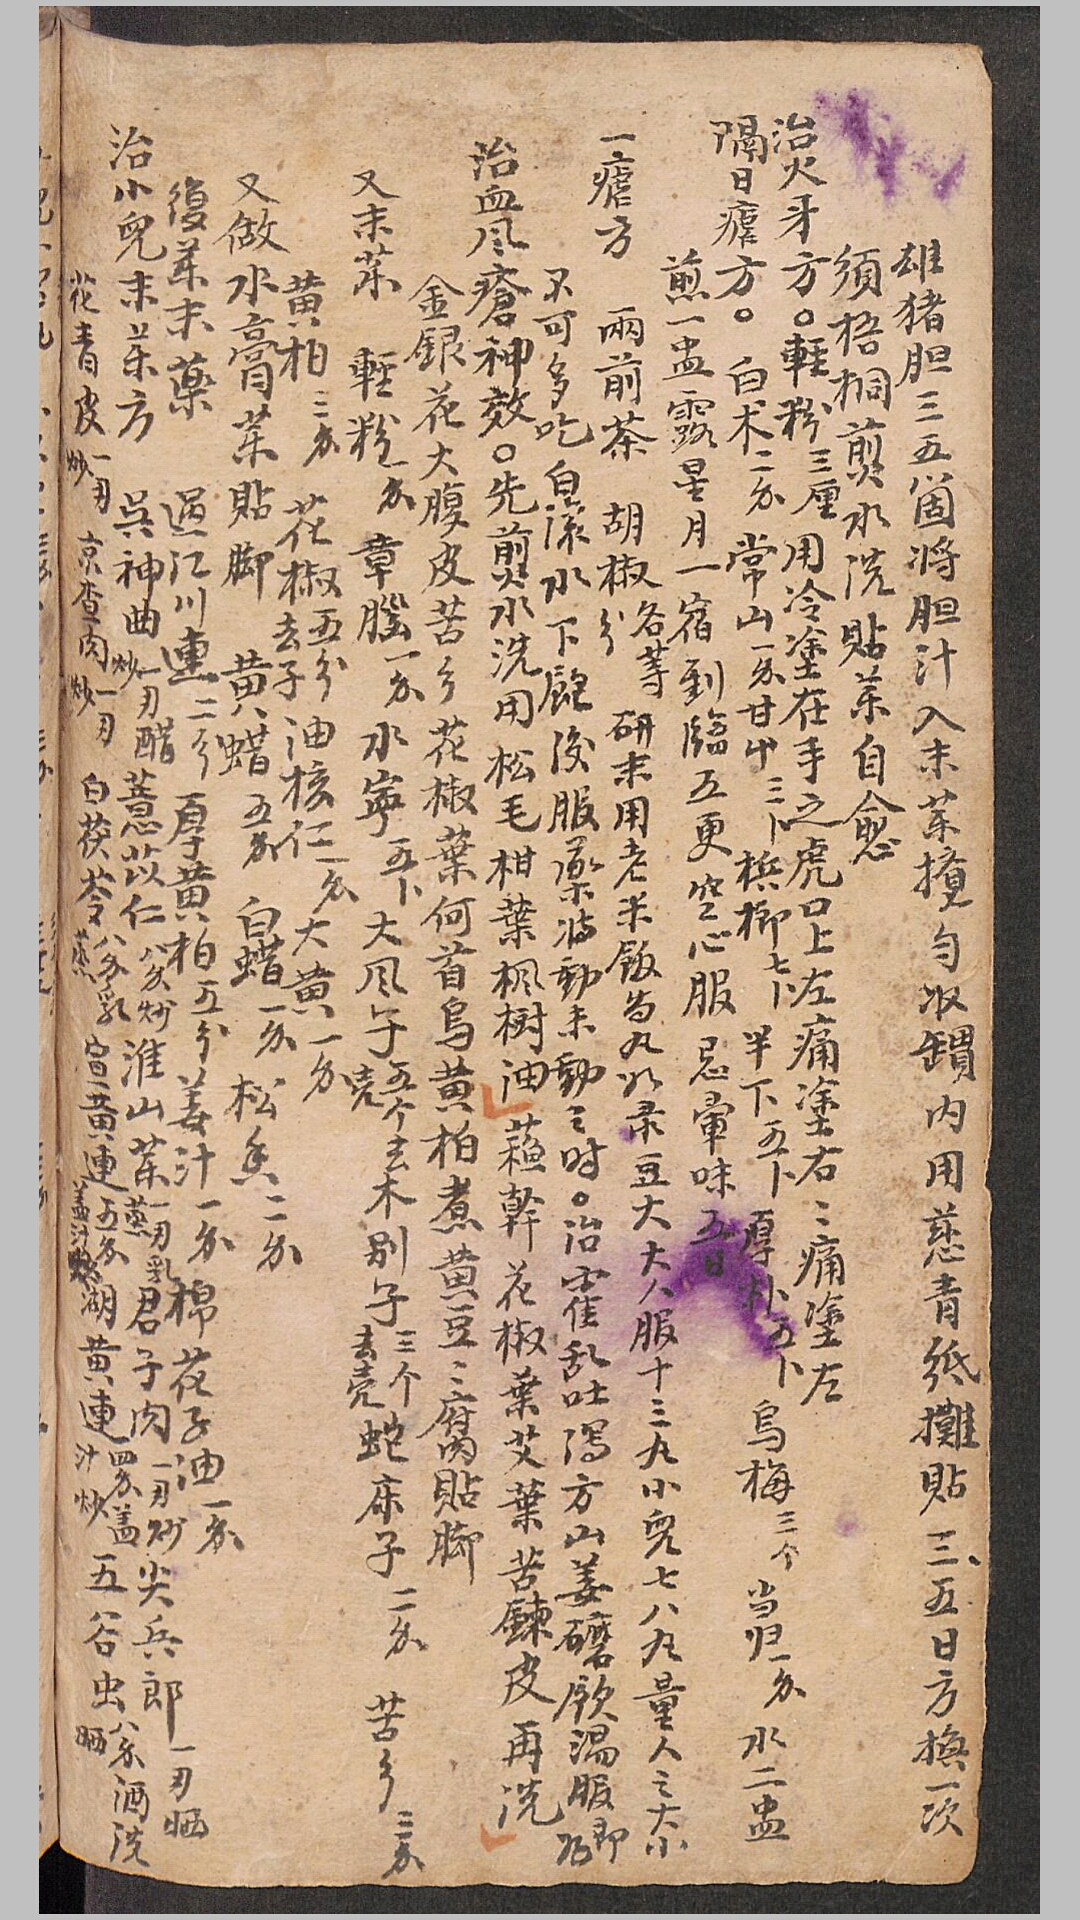 雄猪胆三五箇将胆汁入末茶攪勻收罐内用慈青紙攤貼三五日方換一次
須梧桐煎水洗貼茶自愈
治火牙方。輕粉三厘用冷塗在手之虎口上左痛塗右〻痛塗左
隔日瘧方。白术二分常山一分甘中三卜梹榔七卜半下五卜厚朴五卜烏梅三个当归一分水二盅
煎一盅露星月一宿到臨五更空心服忌葷味五日
一瘧方 兩前茶 胡椒各等分 研末用老米飯為丸如菉豆大大人服十三丸小兒七八丸量人之大小
不可多吃白滚水下飽後服薬將動未動〻时。治霍乱吐瀉方山姜磨飲温服即
治血风瘡神效。先煎水洗用松毛柑葉楓樹油蘓幹花椒葉艾葉苦鍊皮再洗
金銀花大腹皮苦參花椒葉何首烏黄柏煮黄豆〻腐貼脚
又末茶 輕粉一分 章腦一分 水寧五卜 大风子五个去壳 木别子三个去壳 蛇床子二分 苦參三分
黄柏三分 花椒五分去子 油核仁一分 大黄一分
又做水膏茶貼脚 黄蜡五分 白蜡一分 松香二分
復茶末薬 過江川連二分 厚黄柏五分 姜汁一分 棉花子油一分
治小兒末茶方 吳神曲一刃醋炒 薏苡仁八分炒 淮山茶一刃乳蒸 君子肉一刃炒 尖兵郎一刃晒
花青皮一刃炒 京查肉一刃炒 白茯苓八分乳蒸 宣黄連五分盖汁炒 湖黄連四分盖汁炒 五谷虫八分酒洗晒